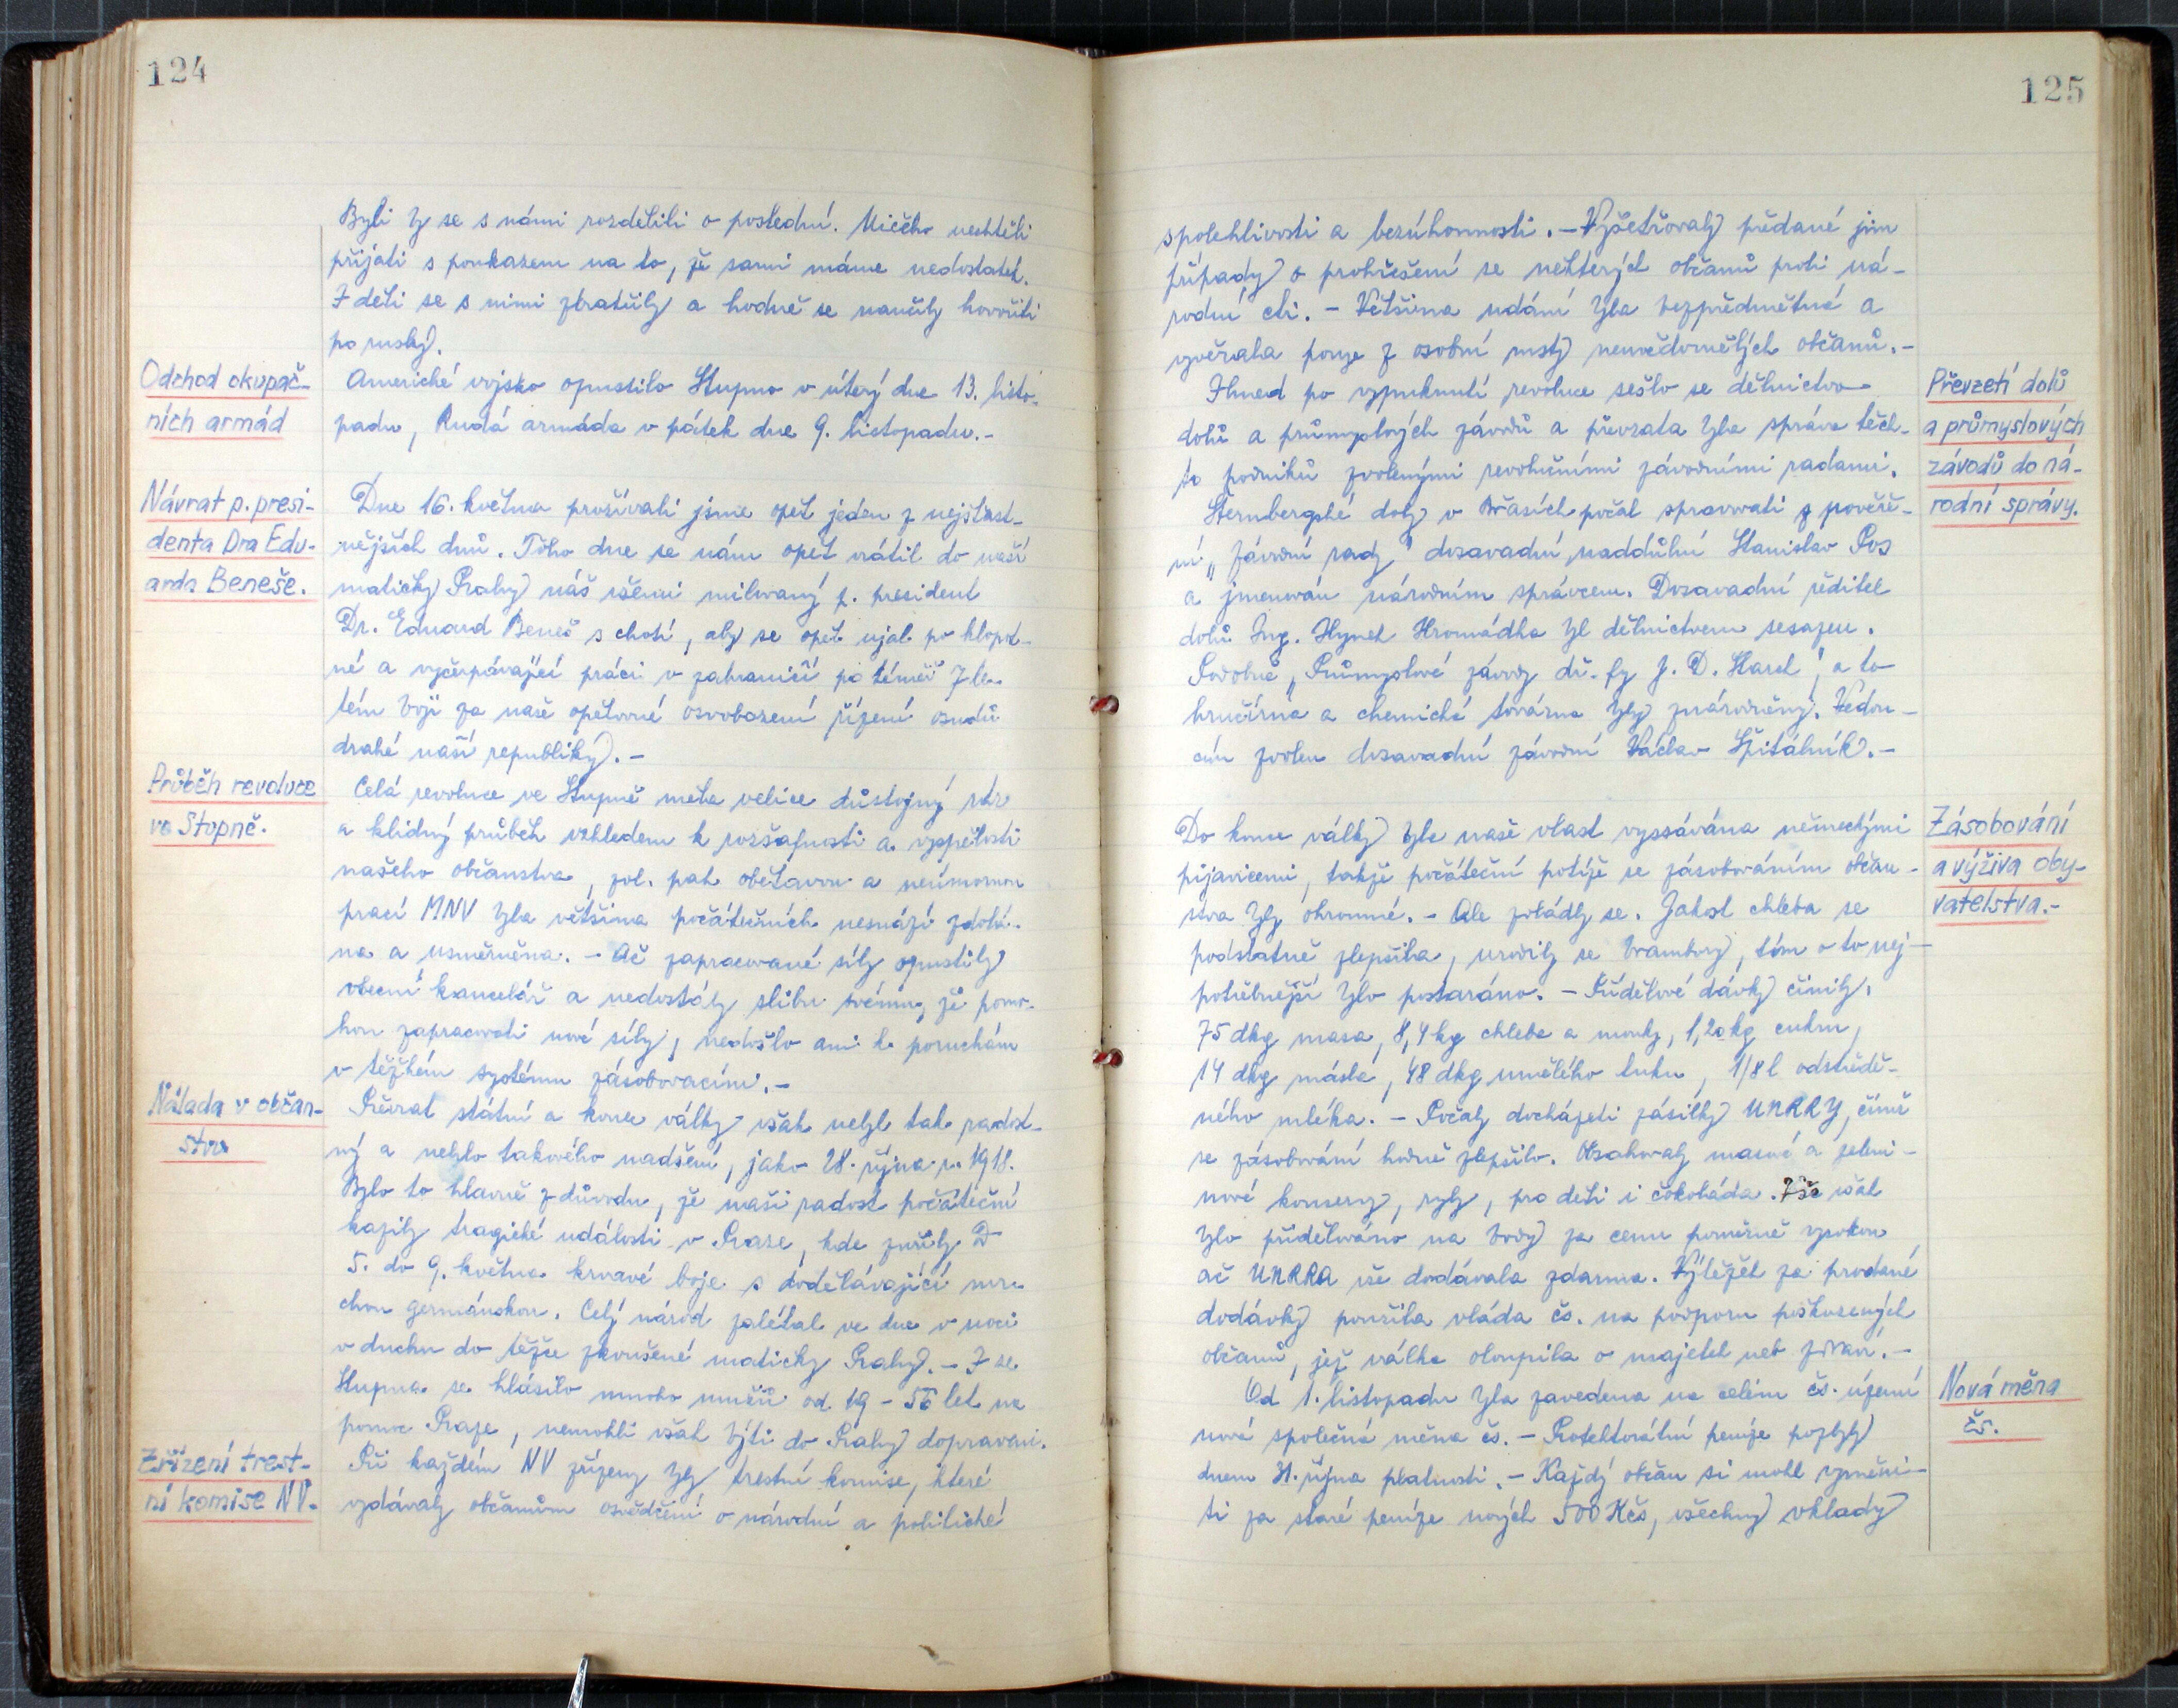 124
Byli by se s námi rozdělili o poslední. Ničeho nechtěli
přijati s poukazem na to, že sami máme nedostatek.
I děti se s nimi zbratřily a hodně se naučily hovořiti
po rusky.
Odchod okupač-
ních armád
Americké vojsko opustilo Stupno v úterý dne 13. listo-
padu, Rudá armáda v pátek dne 9. listopadu.-
Návrat p. presi-
denta Dra Edu-
arda Beneše.
Dne 16. května prožívali jsme opět jeden z nejšťast-
nějších dnů. Toho dne se nám opět vrátil do naší
matičky Prahy náš všemi milovaný p. president
Dr. Eduard Beneš s chotí, aby se opět ujal po klopot-
né a vyčerpávající práci v zahraničí po téměř 7 le-
tém boji za naše opětovné osvobození řízení osudů
drahé naší republiky.-
Průběh revoluce
ve Stupně.
Celá revoluce ve Stupně měla velice důstojný ráz
a klidný průběh vzhledem k rozšafnosti a vyspělosti
našeho občanstva, zvl. pak obětavou a neúmornou
prací MNV byla většina počátečních nesnází zdolá-
na a usměrněna. - Ač zapracované síly opustily
obecní kancelář a nedostály slibu svému, že pomo-
hou zapracovati nové síly, nedošlo ani k poruchám
v těžkém systému zásobovacím.-
Nálada v občan-
stvu
Převrat státní a konec války však nebyl tak radost-
ný a nebylo takového nadšení, jako 28. října r. 1918.
Bylo to hlavně z důvodu, že naši radost počáteční
kazily tragické události v Praze, kde zuřily
5. do 9. května krvavé boje s dodělávající mr-
chou germánskou. Celý národ zalétal ve dne v noci
v duchu do těžce zkoušené matičky Prahy. - I ze
Stupna se hlásilo mnoho mužů od 19 - 56 let na
pomoc Praze, nemohli však býti do Prahy dopraveni.
Zřízení trest-
ní komise NV.
Při každém NV zřízeny byly trestní komise, které
vydávaly občanům osvědčení o národní a politické
125
spolehlivosti a bezúhonnosti. - Vyšetřovaly předané jim
případy o prohřešení se některých občanů proti ná-
rodní cti. - Většina udání byla bezpředmětná a
vyvěrala pouze z osobní msty neuvědomělých občanů.-
Převzetí dolů
a průmyslových
závodů do ná-
rodní správy.
Ihned po vypuknutí revoluce sešlo se dělnictvo
dolů a průmyslových závodů a převzata byla správa těch-
to podniků zvolenými revolučními závodními radami.
Šternbergské doly v Břasích počal spravovati z pověře-
ní „závodní rady" dosavadní naddůlní Stanislav Pos
a jmenován národním správcem. Dosavadní ředitel
dolů Ing. Hynek Hromádka byl dělnictvem sesazen.
Podobně „Průmyslové závody dř. fy J. D. Starck", a to
hrnčírna a chemická továrna byly znárodněny. Vedou-
cím zvolen dosavadní závodní Václav Špitálník.-
Zásobování
a výživa oby-
vatelstva.-
Do konce války byla naše vlast vyssávána německými
pijavicemi, takže počáteční potíže se zásobováním občan-
stva byly ohromné. - Ale zvládly se. Jakost chleba se
podstatně zlepšila, urodily se brambory, tím o to nej-
potřebnější bylo postaráno. - Přídělové dávky činily:
75 dkg masa, 8,4 kg chleba a mouky, 1,20 kg cukru,
14 dkg másla, 48 dkg umělého tuku, 1/8 l odstředě-
ného mléka. - Počaly docházeti zásilky UNRRY, čímž
se zásobování hodně zlepšilo. Obsahovaly masové a zeleni-
nové konservy, ryby, pro děti i čokoláda. Vše však
bylo přidělováno na body za cenu poměrně vysokou
ač UNRRA vše dodávala zdarma. Výtěžek za prodané
dodávky použila vláda čs. na podporu poškozených
občanů, jež válka oloupila o majetek neb zdraví.-
Nová měna
čs.
Od 1. listopadu byla zavedena na celém čs. území
nová společná měna čs. - Protektorátní peníze pozbyly
dnem 31. října platnosti. - Každý občan si mohl vyměni-
ti za staré peníze nových 500 Kčs, všechny vklady